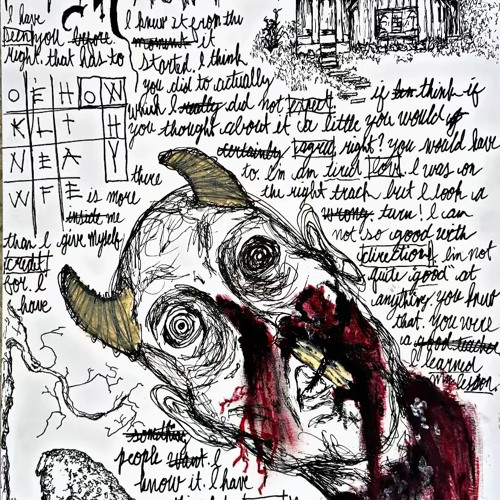 I have
seen you before
right. that has to
I knew it from the
moment it
started. I think
you did to actually
which I really did not expect.
you thought about it a little you would
if think if
certainly agree right? you would have
to. I'm am tired I was on
the right track but I took a
wrong turn! I can
not so good with
direction I'm not
quite good at
anything. you knew
that. you were
is a good teacher
I learned
my lesson.
O E H O W
K L T H
N E A Y
W F E
there
is more
inside me
than I give myself
credit
for. I
have
something
people want. I
know it. I have